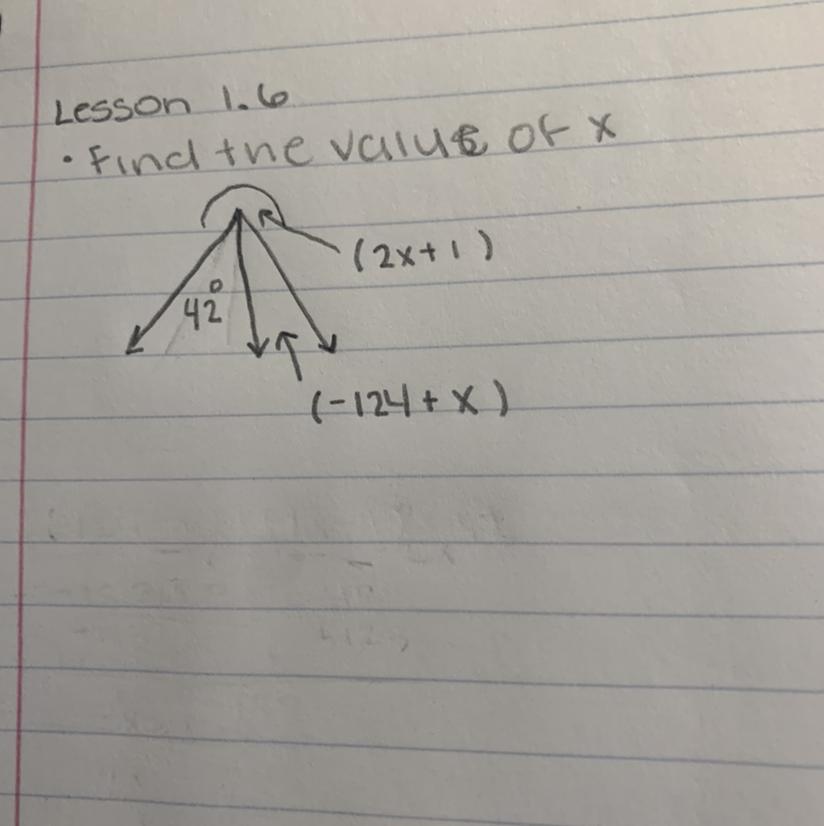 Lesson 1.6
• Find the value of x
(2x+1)
42°
(-124+x)